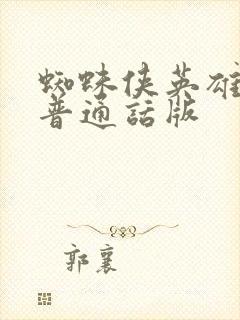 蜘蛛侠英雄
普通話版
郭襄